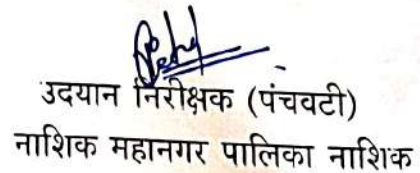 उदयान निरीक्षक (पंचवटी)
नाशिक महानगर पालिका नाशिक